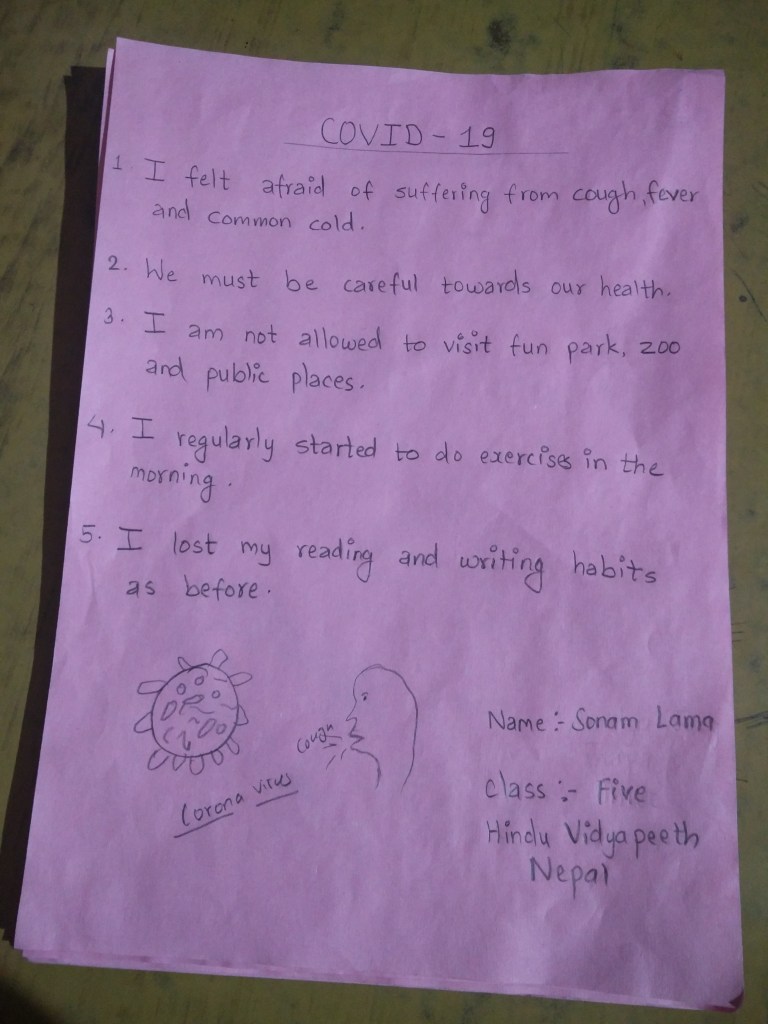 COVID - 19
1 I felt afraid of suffering from cough, fever
and common cold.
2. We must be careful towards our health.
3. I am not allowed to visit fun park, zoo
and public places.
4. I regularly started to do exercises in the
morning.
5. I lost my reading and writing habits
as before.
Cough
Corona virus
Name :- Sonam Lama
Class :- Five
Hindu Vidyapeeth
Nepal